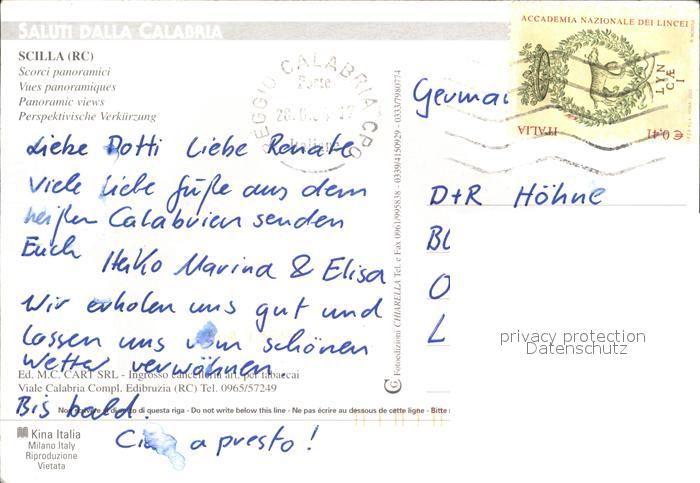 SALUTI DALLA CALABRIA
SCILLA (RC)
Scorci panoramici
Vues panoramiques
Panoramic views
Perspektivische Verkürzung
REGGIO CALABRIA CPO
Poste
Italiane
ACCADEMIA NAZIONALE DEI LINCEI
LYNCÆI
ITALIA
€ 0,41
Germa
Liebe Dotti Liebe Renate
Viele liebe Grüße aus dem
heißen Calabrien senden
Euch
Heiko Marina & Elisa
Wir erholen uns gut und
lassen uns vom schönen
Wetter verwöhnen.
Bis bald.
Ciao a presto!
D+R Höhne
Bl
O
L
privacy protection
Datenschutz
Fotoedizioni CHIARELLA Tel. e Fax 0961/995838 - 0339/4150929 - 0333/7980774
Ed. M.C. CART SRL - Ingrosso cancelleria art. per tabaccai
Viale Calabria Compl. Edibruzia (RC) Tel. 0965/57249
Non scrivere al disotto di questa riga - Do not write below this line - Ne pas écrire au dessous de cette ligne - Bitte
Kina Italia
Milano Italy
Riproduzione
Vietata